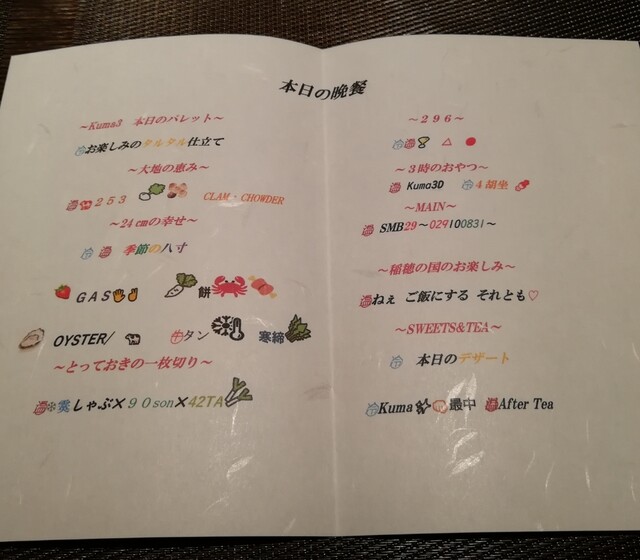 本日の晩餐
～Kuma3 本日のパレット～
お楽しみのタルタル仕立て
～大地の恵み～
２５３ CLAM・CHOWDER
～24㎝の幸せ～
季節の八寸
ＧＡＳ
餅
OYSTER/
牛タン
寒締
～とっておきの一枚切り～
しゃぶ×９０son×42TA
～２９６～
△
～３時のおやつ～
Kuma3D ４胡坐
～MAIN～
SMB29～029100831～
～稲穂の国のお楽しみ～
ねぇ ご飯にする それとも♡
～SWEETS&TEA～
本日のデザート
Kuma 最中 After Tea